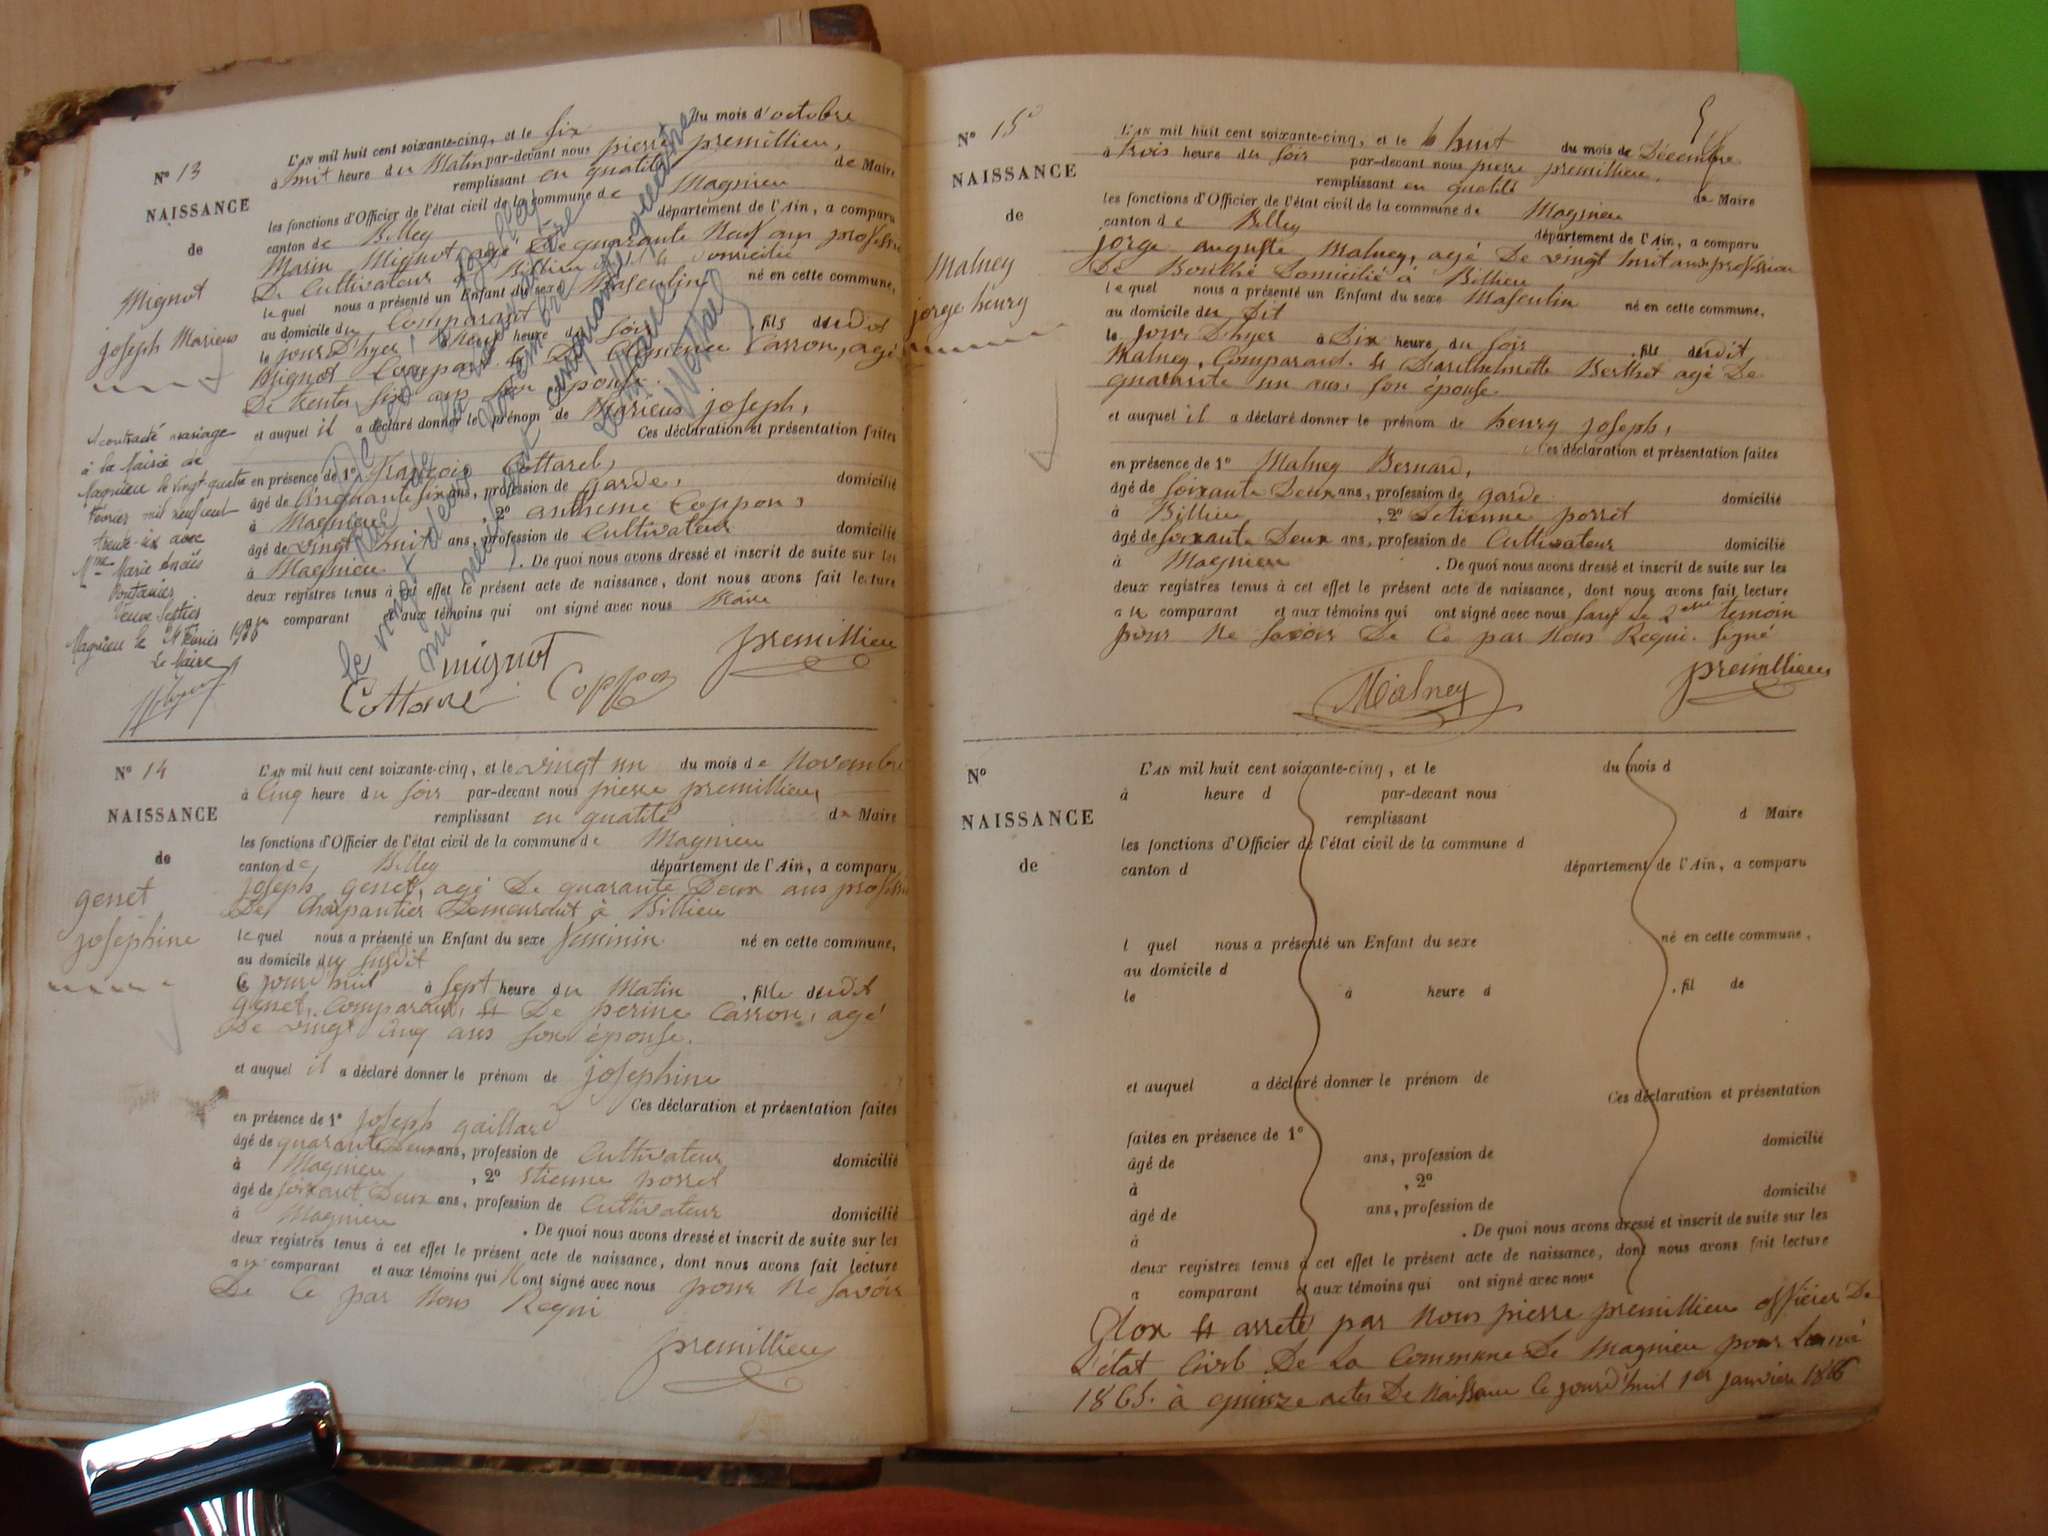 Nº 13
NAISSANCE
de
Mignot
joseph Marieus
L'AN mil huit cent soixante-cinq, et le six du mois d'octobre
à huit heure du Matin par-devant nous pierre premillieu,
remplissant en qualité de Maire
les fonctions d'Officier de l'état civil de la commune de Magnieu
canton de Belley département de l'Ain, a comparu
Marin Mignot agé De quarante Neuf ans profession
De Cultivateur Billieu domicilié
le quel nous a présenté un Enfant du sexe Masculin né en cette commune,
au domicile du Comparant
le jour D'hyer, à heure du soir, fils dudit
Mignot Comparant & De Clémence Carron, agé
De trente six ans son épouse.
et auquel il a déclaré donner le prénom de Marieus joseph,
Ces déclaration et présentation faites
en présence de 1º françois Cottarel,
âgé de Cinquante six ans, profession de garde, domicilié
à Magnieu, 2º antheme Coppon,
âgé de vingt huit ans, profession de Cultivateur domicilié
à Magnieu. De quoi nous avons dressé et inscrit de suite sur les
deux registres tenus à cet effet le présent acte de naissance, dont nous avons fait lecture
au comparant et aux témoins qui ont signé avec nous Maire
mignot premillieu
Cottarel Coppon
A contracté mariage
à la Mairie de
Magnieu le vingt quatre
Février mil neuf cent
trente-six avec
Mme Marie
Veuve
Magnieu le 24 Février 1936
Le Maire
Belley
le vingt
Le Maire
Nº 14
NAISSANCE
de
genet
josephine
L'AN mil huit cent soixante-cinq, et le vingt un du mois de Novembre
à Cinq heure du soir par-devant nous pierre premillieu
remplissant en qualité de Maire
les fonctions d'Officier de l'état civil de la commune de Magnieu
canton de Belley département de l'Ain, a comparu
joseph genet, agé De quarante Deux ans profession
De Charpantier Demeurant à Billieu
le quel nous a présenté un Enfant du sexe feminin né en cette commune,
au domicile du susdit
le jourd'huit à sept heure du Matin, fille dudit
genet, Comparant, & De perine Carron, agé
De vingt Cinq ans son épouse.
et auquel il a déclaré donner le prénom de josephine
Ces déclaration et présentation faites
en présence de 1º joseph gaillard
âgé de quarante Deux ans, profession de Cultivateur domicilié
à Magnieu, 2º Etienne porret
âgé de soixant Deux ans, profession de Cultivateur domicilié
à Magnieu. De quoi nous avons dressé et inscrit de suite sur les
deux registres tenus à cet effet le présent acte de naissance, dont nous avons fait lecture
au comparant et aux témoins qui N'ont signé avec nous pour Ne savoir
De Ce par Nous Requi
premillieu
Nº 15
NAISSANCE
de
Malney
jorge henry
L'AN mil huit cent soixante-cinq, et le huit du mois de Décembre
à trois heure du soir par-devant nous pierre premillieu,
remplissant en qualité de Maire
les fonctions d'Officier de l'état civil de la commune de Magnieu
canton de Belley département de l'Ain, a comparu
jorge auguste Malney, agé De vingt huit ans profession
De Domicilié à Billieu
le quel nous a présenté un Enfant du sexe Masculin né en cette commune,
au domicile du Dit
le jour D'hyer à Six heure du soir, fils dudit
Malney, Comparant. & Berthet agé De
quarante un ans, son épouse.
et auquel il a déclaré donner le prénom de henry joseph,
Ces déclaration et présentation faites
en présence de 1º Malney Bernard,
âgé de soixante Deux ans, profession de garde domicilié
à Billieu, 2º Etienne porret
âgé de soixante Deux ans, profession de Cultivateur domicilié
à Magnieu. De quoi nous avons dressé et inscrit de suite sur les
deux registres tenus à cet effet le présent acte de naissance, dont nous avons fait lecture
a le comparant et aux témoins qui ont signé avec nous sauf le 2eme temoin
pour Ne savoir De Ce par Nous Requi. signé
Malney premillieu
Nº
NAISSANCE
de
L'AN mil huit cent soixante-cinq, et le du mois d
à heure d par-devant nous
remplissant d Maire
les fonctions d'Officier de l'état civil de la commune d
canton d département de l'Ain, a comparu
l quel nous a présenté un Enfant du sexe né en cette commune,
au domicile d
le à heure d , fil de
et auquel a déclaré donner le prénom de
Ces déclaration et présentation
faites en présence de 1º domicilié
âgé de ans, profession de
à , 2º domicilié
âgé de ans, profession de
à . De quoi nous avons dressé et inscrit de suite sur les
deux registres tenus à cet effet le présent acte de naissance, dont nous avons fait lecture
a comparant et aux témoins qui ont signé avec nous
Clox & arrete par Nous pierre premillieu officier De
L'état Civil De La Commune De Magnieu pour Lanné
1865. à quinze actes De Naissance Ce jourd'huil 1er janvier 1866